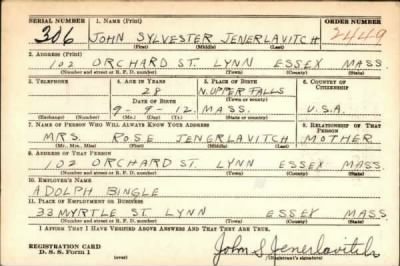 SERIAL NUMBER 1. NAME (Print) ORDER NUMBER
306 JOHN SYLVESTER JENERLAVITCH 2449
(First) (Middle) (Last)
2. ADDRESS (Print)
102 ORCHARD ST. LYNN ESSEX MASS.
(Number and street or R. F. D. number) (Town) (County) (State)
3. TELEPHONE 4. AGE IN YEARS 5. PLACE OF BIRTH 6. COUNTRY OF CITIZENSHIP
28 N. UPPER FALLS
DATE OF BIRTH (Town or county)
9-9-12. MASS. U.S.A.
(Exchange) (Number) (Mo.) (Day) (Yr.) (State or country)
7. NAME OF PERSON WHO WILL ALWAYS KNOW YOUR ADDRESS 8. RELATIONSHIP OF THAT PERSON
MRS. ROSE JENERLAVITCH MOTHER
(Mr., Mrs., Miss) (First) (Middle) (Last)
9. ADDRESS OF THAT PERSON
102 ORCHARD ST. LYNN ESSEX MASS
(Number and street or R. F. D. number) (Town) (County) (State)
10. EMPLOYER'S NAME
ADOLPH BINGLE
11. PLACE OF EMPLOYMENT OR BUSINESS
33 MYRTLE ST. LYNN ESSEX MASS
(Number and street or R. F. D. number) (Town) (County) (State)
I AFFIRM THAT I HAVE VERIFIED ABOVE ANSWERS AND THAT THEY ARE TRUE.
REGISTRATION CARD
D. S. S. Form 1 John S. Jenerlavitch